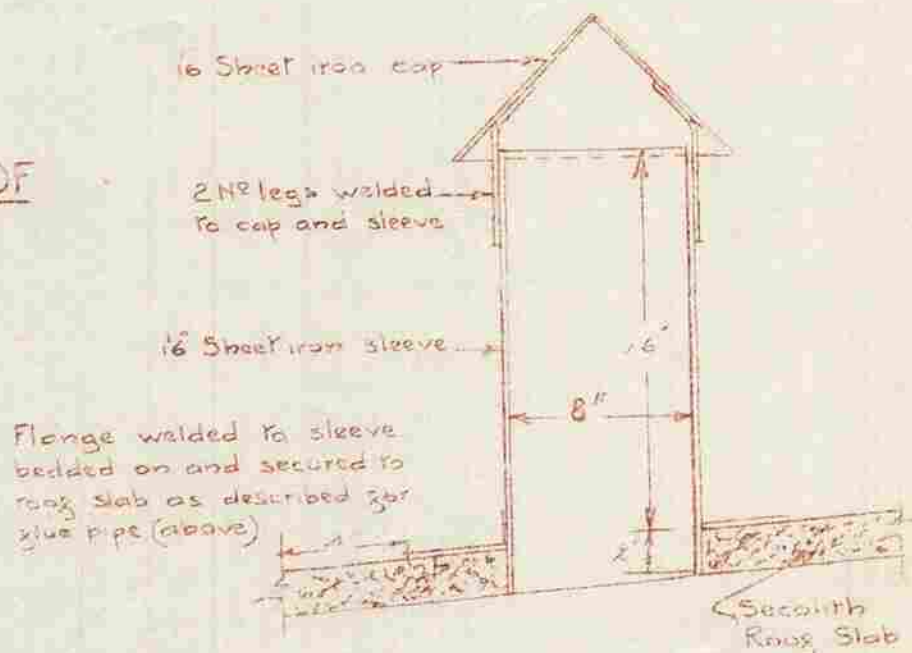 16 Sheet iron cap
OF
2 Nº legs welded
to cap and sleeve
16 Sheet iron sleeve
8"
Flange welded to sleeve
bedded on and secured to
roof slab as described for
flue pipe (above)
2"
Secolith
Roof Slab